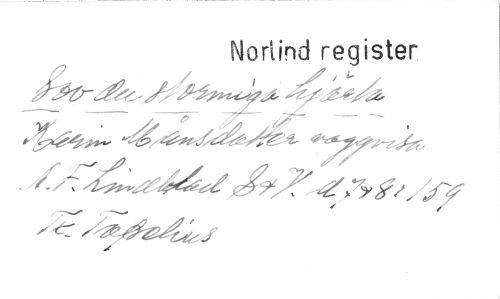 Norlind register
Sov du stormiga hjärta
Karin Månsdotter vaggvisa
A.F. Lindblad S&V. d 7&8: 159
Tk. Topelius